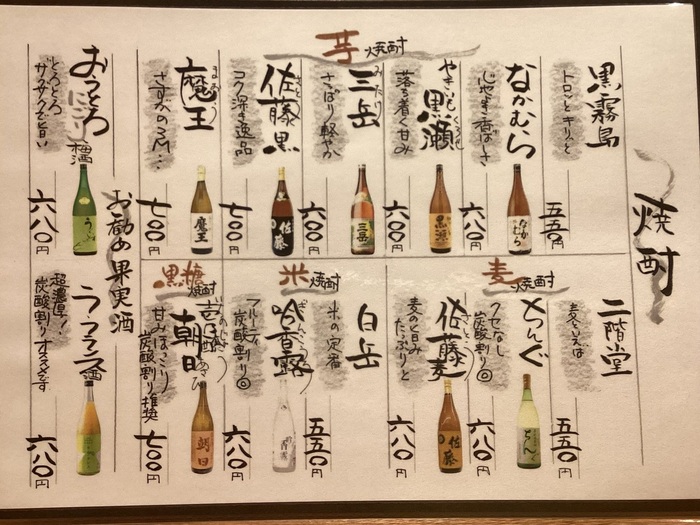 焼酎
芋焼酎
黒霧島
トロッとキリッと
五五〇円
なかむら
じゃがいも香ばしさ
六八〇円
やきいも黒瀬
くろせ
落ち着く甘み
六八〇円
三岳
みたけ
さっぱり軽やか
六〇〇円
佐藤黒
さとう
コク深き逸品
七〇〇円
魔王
まおう
さすがの3M…
七〇〇円
麦焼酎
二階堂
麦といえば
五五〇円
ちんぐ
クセなし
炭酸割り◎
六八〇円
佐藤麦
さとう
麦の旨み
たっぷりと
六八〇円
米焼酎
白岳
米の定番
五五〇円
吟香露
ぎんこうろ
フルーティ
炭酸割り◎
六八〇円
黒糖焼酎
壱乃醸朝日
甘みほっこり
炭酸割り推奨
七〇〇円
お勧め果実酒
おっとろにごり梅酒
とろとろ
サクサクで旨い
六八〇円
うっふふ酒
超濃厚!
炭酸割りオススメです
六八〇円